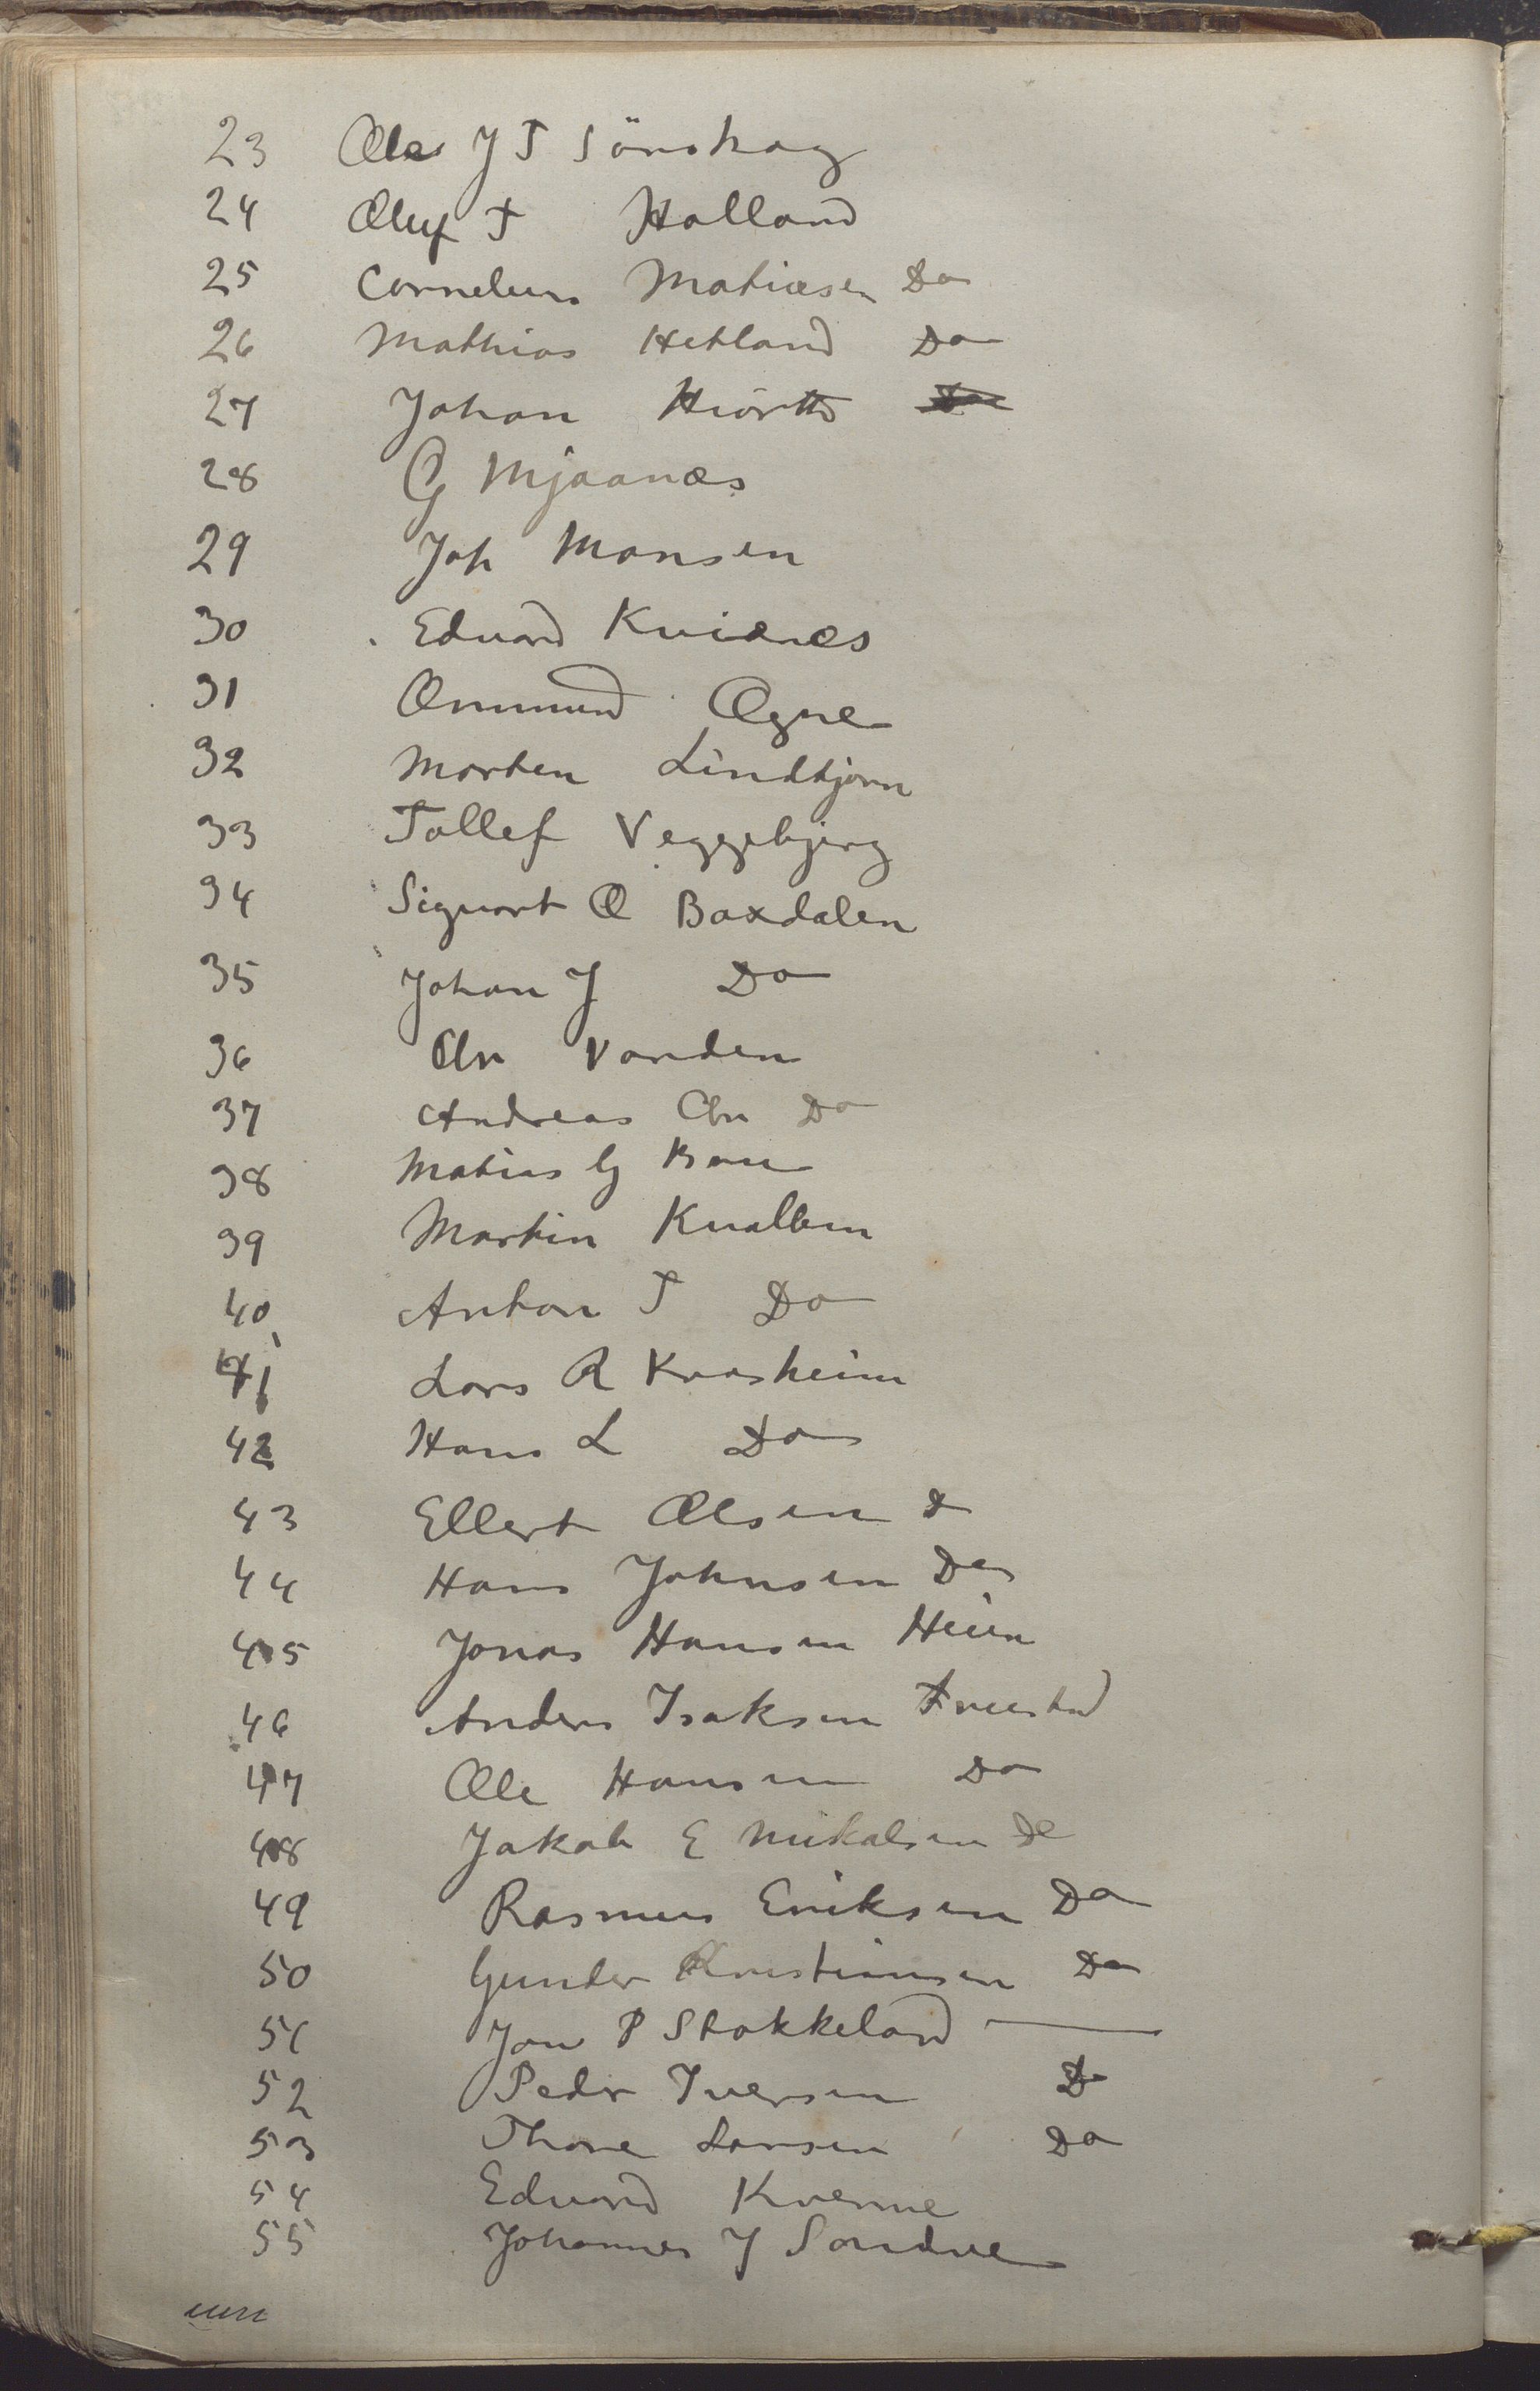 23 Ole J T Sönshag
24 Oluf T Holland
25 Cornelius Matiesen Do
26 Mathias Hetland Do
27 Johan Hiorth
28 G Mjaanæs
29 Joh Monsen
30 Edvard Kviænæs
31 Ommund Ogne
32 Morten Lindtjørn
33 Tollef Veggebjerg
34 Siguart O Baxdalen
35 Johan J Do
36 Chr Vanden
37 Andreas Chr Do
38 Matias G
39 Martin Knallem
40 Anton T Do
41 Lars R Kraasheim
42 Hans L Do
43 Ellert Olsen D
44 Hans Johnsen Do
45 Jonas Hansen Heien
46 Anders Isaksen
47 Ole Hansen Do
48 Jakob E Mikalsen Do
49 Rasmus Eriksen Do
50 Gunder Kristiansen Do
51 Jon P Stokkeland —
52 Peder Iversen Do
53 Thore Larsen Do
54 Edvard Kverme
55 Johannes J Sandve